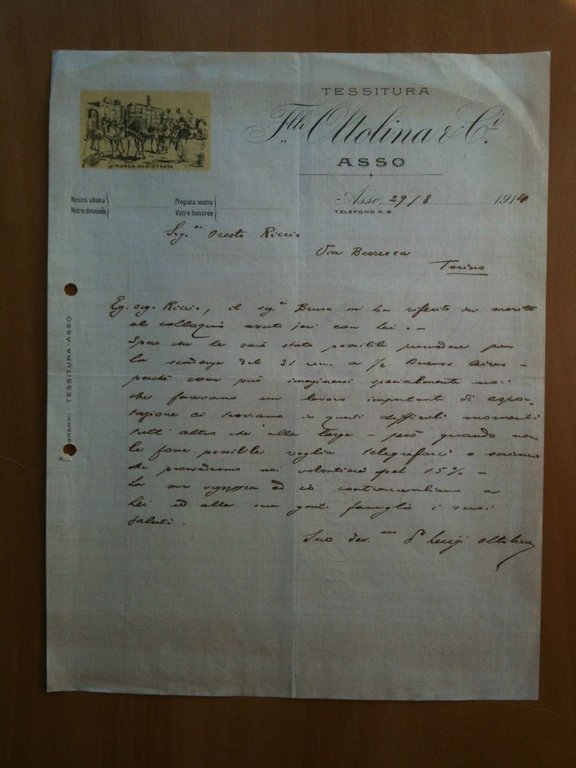 TESSITURA
F.lli Ottolina & C.i
ASSO
MARCA REGISTRATA
Nostra ultima
Notre devouée
Pregiata vostra
Votre honorée
Asso, 29/8 1914
TELEFONO N. 6
Sig.r Oreste Riccio
Via
Torino
Eg. sig. Riccio, il sig.r mi ha riferito in merito
al colloquio avuto jeri con lei. –
Spero che le sarà stato possibile provvedere per
la scadenza del 31 a/s Buenos Aires –
poichè come può imaginarsi specialmente noi
che facevamo un lavoro importante di espor-
tazione ci troviamo in questi difficili momenti
tutt'altro che alla larga – però quando non
le fosse possibile voglia telegrafarci o scriverci
che provvederemo noi volontieri pel 15% –
La mia signora ed io contraccambiamo a
Lei ed alla sua gent. famiglia i suoi
saluti.
Suo dev.mo Luigi Ottolina
TELEGRAMMI: TESSITURA-ASSO